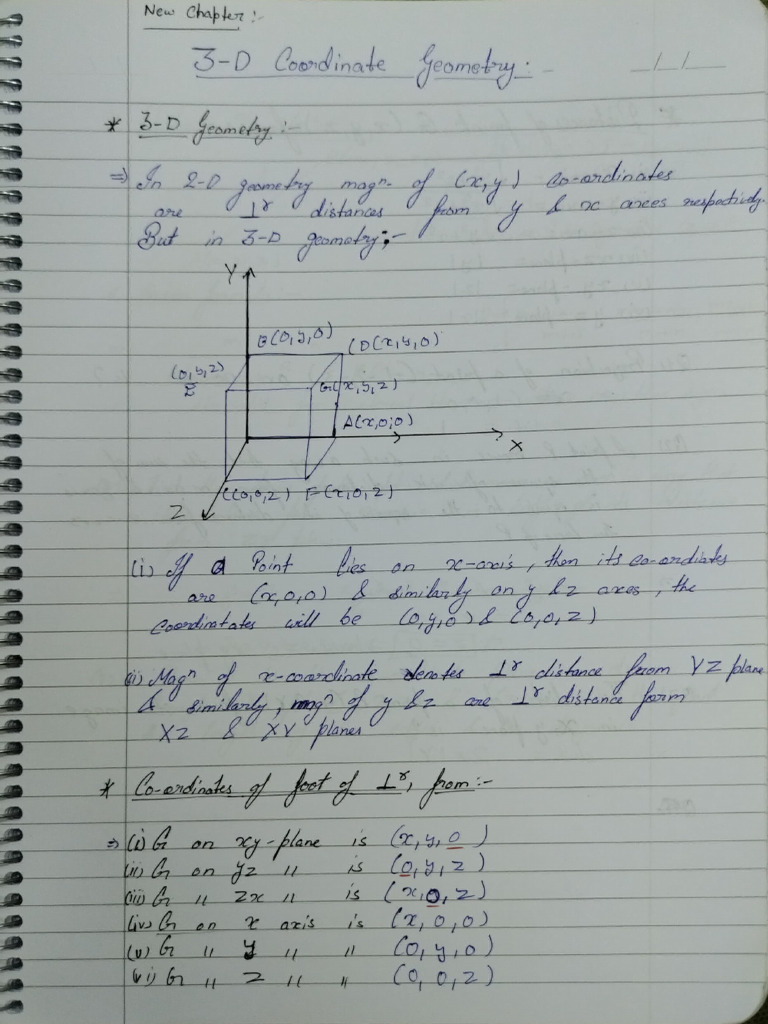 New Chapter :-
3-D Coordinate Geometry :-
* 3-D Geometry :-
⇒ In 2-D geometry magn. of (x,y) co-ordinates
are ⊥r distances from y & x axes respectively.
But in 3-D geometry ;-
Y
B(0,y,0)
(D(x,y,0)
(0,y,z)
E
G(x,y,z)
A(x,0,0)
X
C(0,0,z) F(x,0,z)
Z
(i) If a Point lies on x-axis, then its co-ordiates
are (x,0,0) & similarly on y & z axes, the
coordinatates will be (0,y,0) & (0,0,z)
(ii) Magn of x-coordinate denotes ⊥r distance from YZ plane
& similarly, magn of y & z are ⊥r distance form
XZ & XY planes
* Co-ordinates of foot of ⊥r, from :-
⇒ (i) G on xy-plane is (x,y,0)
(ii) G on yz " is (0,y,z)
(iii) G " zx " is (x,0,z)
(iv) G on x axis is (x,0,0)
(v) G " y " " (0,y,0)
(vi) G " z " " (0,0,z)